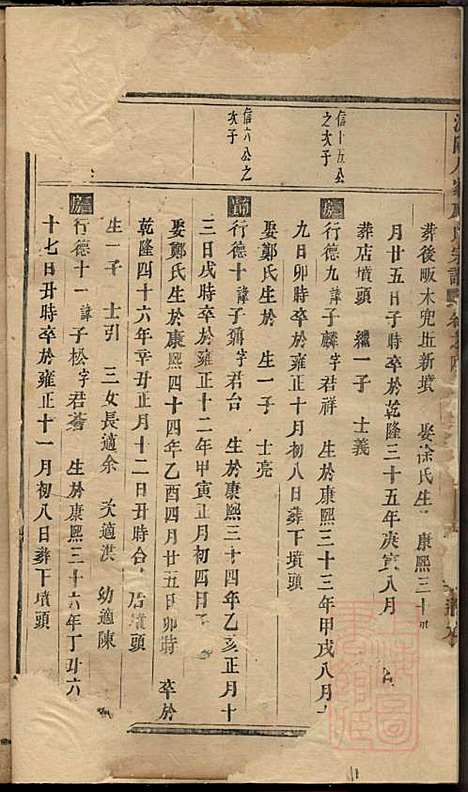 葬後畈木兜丘新墳 娶徐氏生 康熙三十
月廿五日子時卒於乾隆三十五年庚寅八月
葬店墳頭 繼一子 士義
信十五公
之次子
行德九諱子麟字君祥 生於康熙三十三年甲戌八月十
九日卯時卒於雍正十月初八日葬下墳頭
娶鄭氏生於 生一子 士亮
信六公之
次子
行德十諱子彌字君台 生於康熙三十四年乙亥正月十
三日戌時卒於雍正十二年甲寅正月初四日
娶鄭氏生於康熙四十四年乙酉四月廿五日卯時 卒於
乾隆四十六年辛丑正月十二日丑時合 店墳頭
生一子 士引 三女長適余 次適洪 幼適陳
行德十一諱子松字君蒼 生於康熙三十六年丁丑六
十七日丑時卒於雍正十一月初八日葬下墳頭